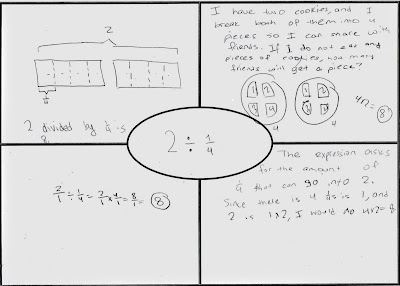 2
1/4
2 divided by 1/4 is
8.
I have two cookies, and I
break both of them into 4
pieces so I can share with
friends. If I do not eat any
pieces of cookies, how many
friends will get a piece?
1 2
3 4
1 2
3 4
4
4
4x2= 8
2 ÷ 1/4
2/1 ÷ 1/4 = 2/1 x 4/1 = 8/1 = 8
The expression asks
for the amount of
1/4 that can go into 2.
Since there is 4 1/4s is 1, and
2 is 1x2, I would do 4x2=8